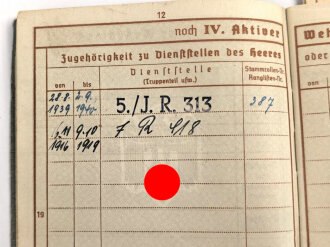 12
noch IV. Aktiver
Zugehörigkeit zu Dienststellen des Heeres
von bis Dienststelle (Truppenteil usw.) Stammrollen-Nr. Ranglisten-Nr.
28.8. 2.9.
1939 5./J.R. 313 287
9.10
1916 1919 7 R 418
19
We